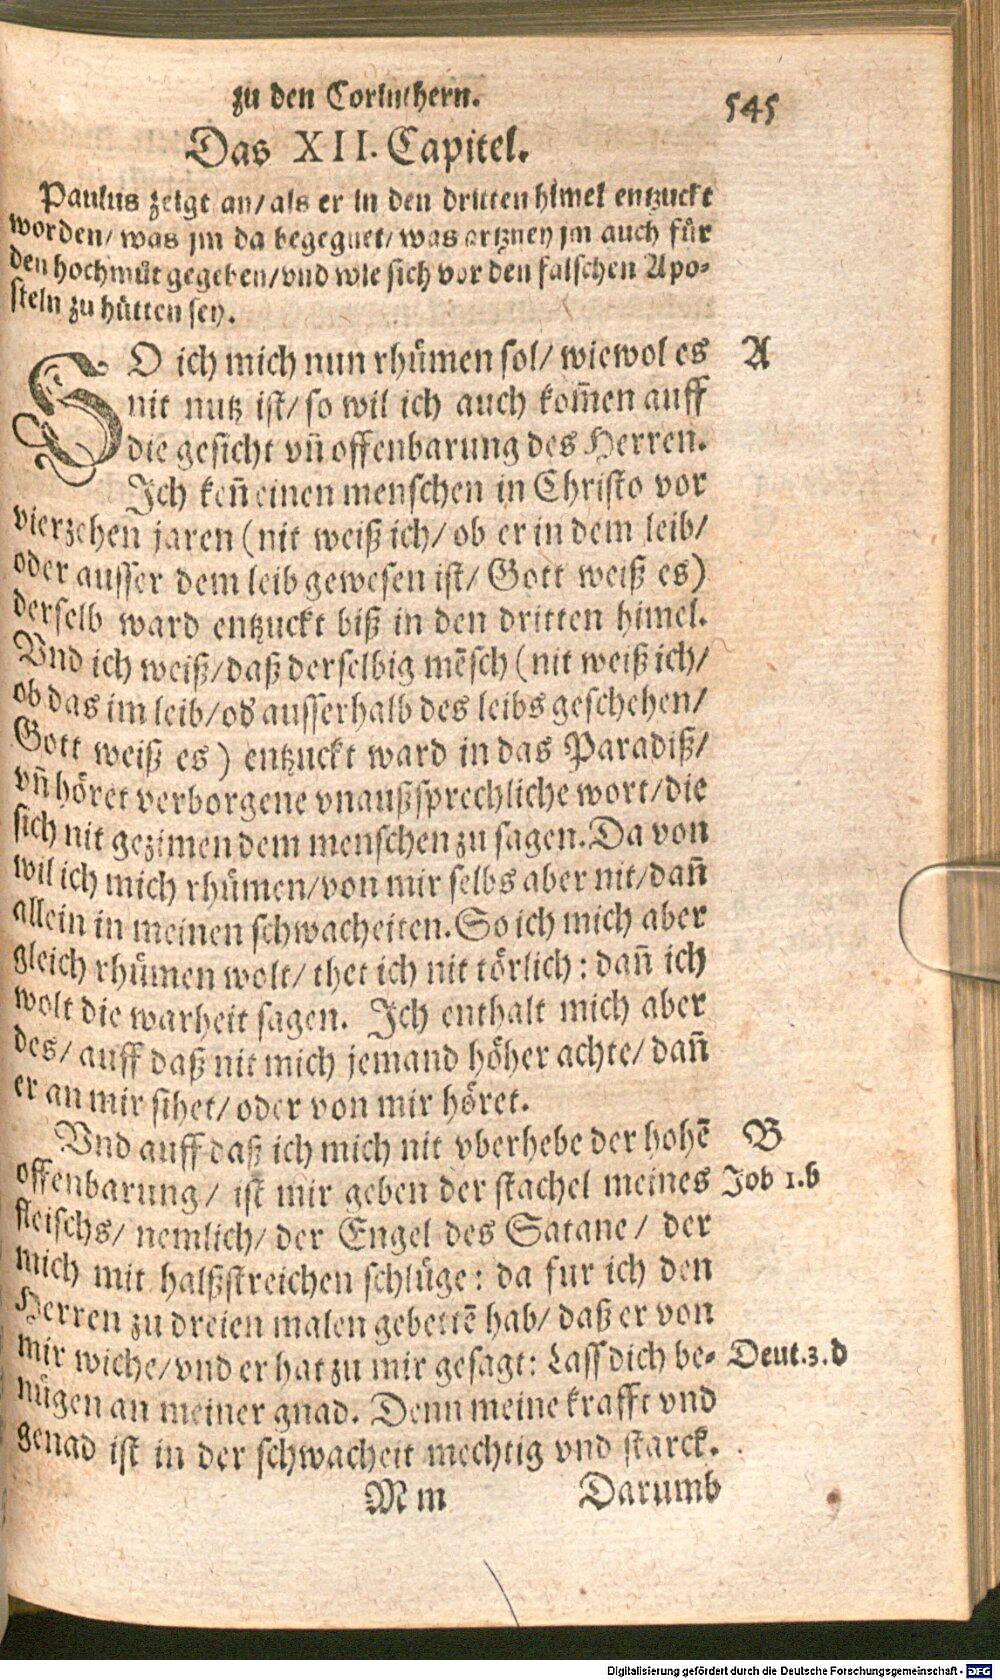 zu den Corinthern.
545
Das XII. Capitel.
Paulus zeigt an/ als er in den dritten himel entzuckt
worden/ was jm da begegnet/ was artzney jm auch für
den hochmůt gegeben/ vnd wie sich vor den falschen Apo-
steln zu hütten sey.
SO ich mich nun rhůmen sol/ wiewol es
A
nit nutz ist/ so wil ich auch kom̄en auff
die gesicht vn̄ offenbarung des Herren.
Ich ken̄ einen menschen in Christo vor
vierzehen jaren (nit weiß ich/ ob er in dem leib/
oder ausser dem leib gewesen ist/ Gott weiß es)
derselb ward entzuckt biß in den dritten himel.
Vnd ich weiß/ daß derselbig mēsch (nit weiß ich/
ob das im leib/ od ausserhalb des leibs geschehen/
Gott weiß es) entzuckt ward in das Paradiß/
vn̄ höret verborgene vnaußsprechliche wort/ die
sich nit gezimen dem menschen zu sagen. Da von
wil ich mich rhůmen/ von mir selbs aber nit/ dan̄
allein in meinen schwacheiten. So ich mich aber
gleich rhůmen wolt/ thet ich nit törlich: dan̄ ich
wolt die warheit sagen. Ich enthalt mich aber
des/ auff daß nit mich jemand höher achte/ dan̄
er an mir sihet/ oder von mir höret.
Vnd auff daß ich mich nit vberhebe der hohē
B
offenbarung/ ist mir geben der stachel meines
Job 1.b
fleischs/ nemlich/ der Engel des Satane/ der
mich mit halßstreichen schlüge: da fur ich den
Herren zu dreien malen gebettē hab/ daß er von
mir wiche/ vnd er hat zu mir gesagt: Lass dich be-
Deut.3.d
nügen an meiner gnad. Denn meine krafft vnd
genad ist in der schwacheit mechtig vnd starck.
M m
Darumb
Digitalisierung gefördert durch die Deutsche Forschungsgemeinschaft - DFG